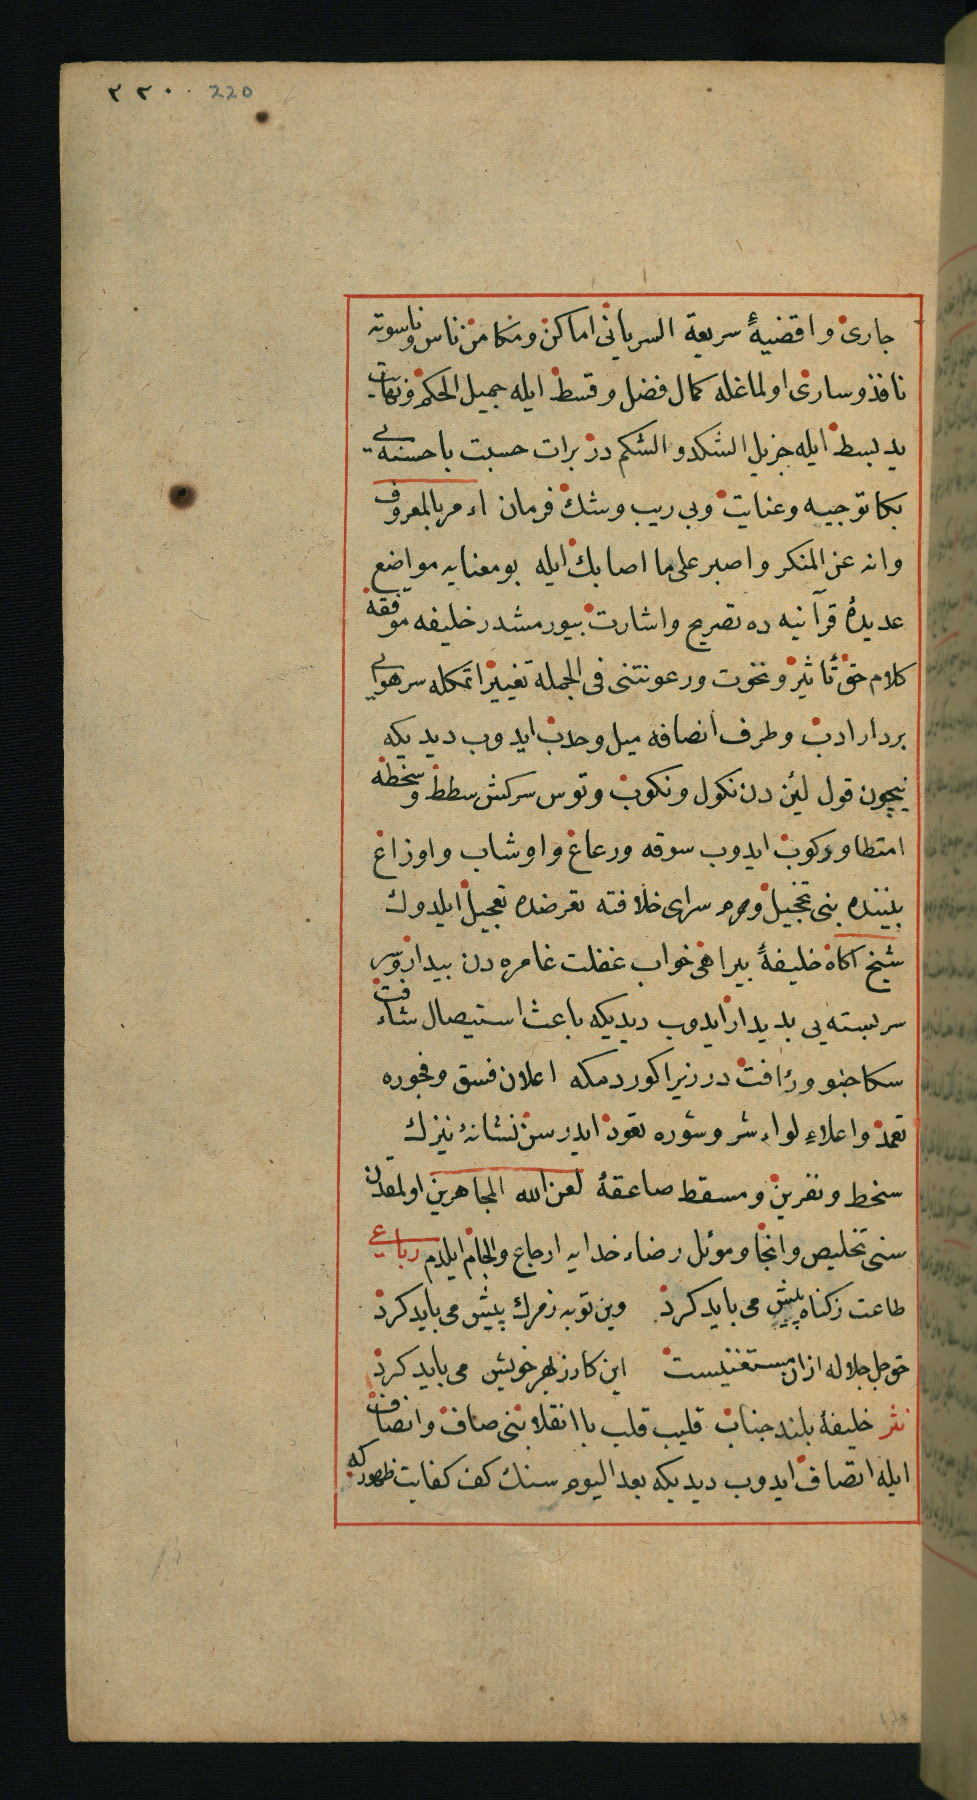 ٢٢٠ 220
جاری و اقضیهٔ سریعة السریانی اماکن و مکامن ناس و ناسوته
نافذ و ساری اولماغله کمال فضل و قسط ایله جمیل الحکم و نهایت
ید بسط ایله جزیل الشکد و الشکم در برات حسبت با حسنه یی
بکا توجیه و عنایت و بی ریب و شك فرمان اءمر بالمعروف
وانه عن المنکر واصبر علی ما اصابك ایله بو معنایه مواضع
عدیدهٔ قرآنیه ده تصریح و اشارت بیورمشدر خلیفه موفقه
کلام حق تأثیر و نخوت و رعونتنی فی الجمله تغییر اتمکله سر هوایی
بردار ادب و طرف انصافه میل و حدب ایدوب دیدیکه
نیچون قول لین دن نکول و نکوب و توس سرکش سطط و سخطه
امتطا و رکوب ایدوب سوقه و رعاع و اوشاب و اوزاغ
بیننده بنی تخجیل و حرم سرای خلافته تعرضده تعجیل ایلدوك
شیخ آکاه خلیفهٔ بیراهی خواب غفلت غامره دن بیدار و سر
سر بسته یی بدیدار ایدوب دیدیکه باعث استیصال شأفت
سکا حنو و رأفت در زیرا کوردمکه اعلان فسق و فجوره
تعمد و اعلاء لواء شر و شوره تعود ایدرسن نشانهٔ نیزك
سخط و نفرین و مسقط صاعقهٔ لعن الله المجاهرین اولمقدن
سنی تخلیص و انجا و موئل رضاء خدایه ارجاع و الجام ایلدم رباعی
طاعت ز کناه پیش می باید کرد وین توبه ز مرك پیش می باید کرد
حق جل جلاله از ان مستغنیست این کار ز بهر خویش می باید کرد
نثر خلیفهٔ بلند جناب قلیب قلب با انقلابنی صاف و انصاف
ایله اتصاف ایدوب دیدیکه بعد الیوم سنك کف کفایت ظهورکه